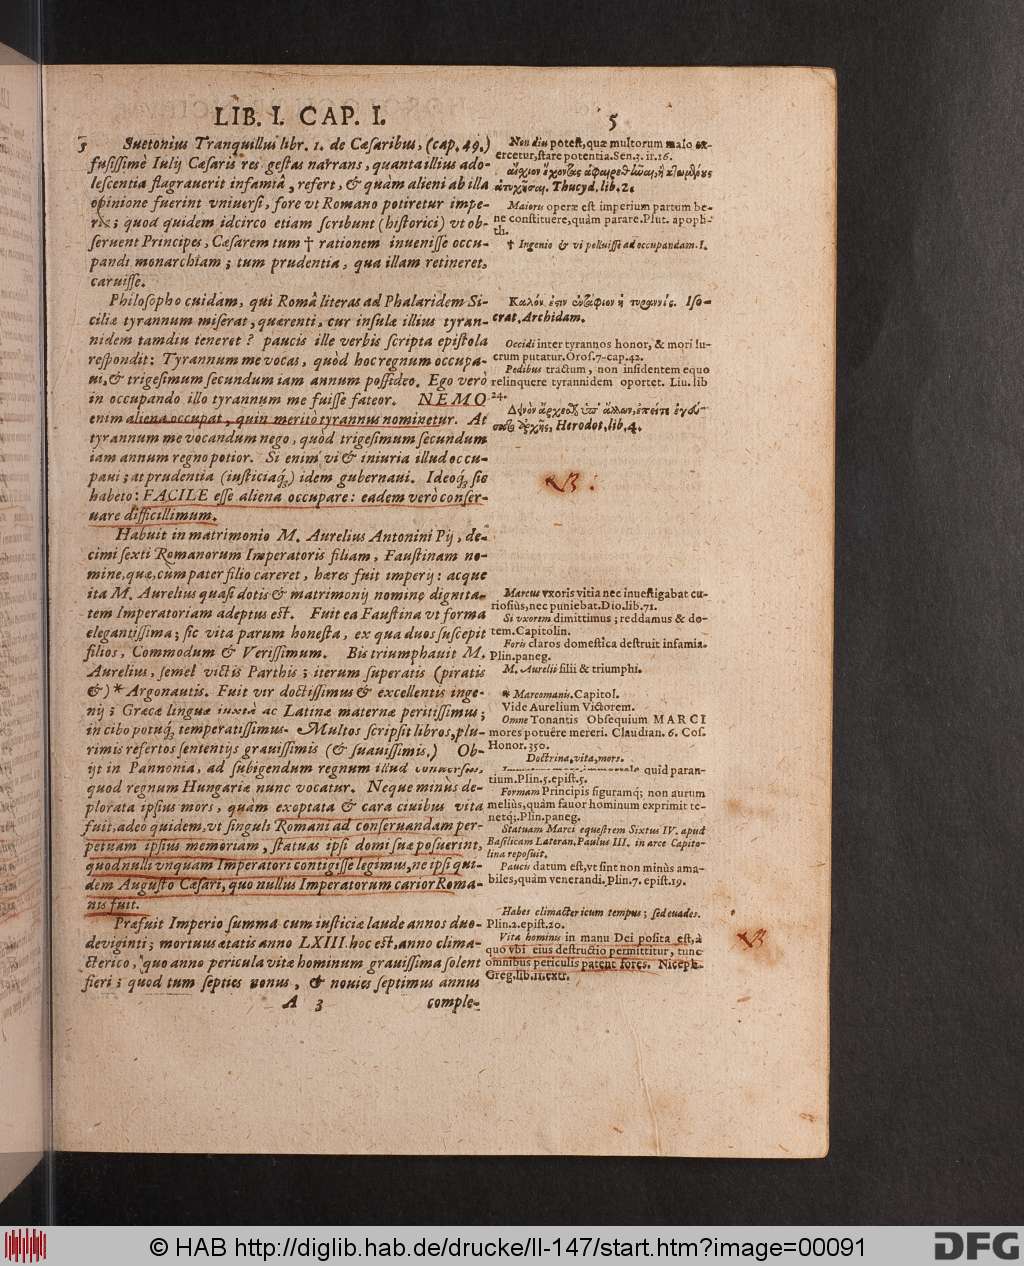 LIB. I. CAP. I.
5
3 Suetonius Tranquillus libr. 1. de Cæsaribus, (cap. 49.)
fusissimè Iulij Cæsaris res gestas narrans, quanta illius ado-
lescentia flagrauerit infamiâ, refert, & quàm alieni ab illa
opinione fuerint vniuersi, fore vt Romano potiretur impe-
rio; quod quidem idcirco etiam scribunt (historici) vt ob-
seruent Principes, Cæsarem tum † rationem inuenisse occu-
pandi monarchiam; tum prudentia, qua illam retineret,
caruisse.
Philosopho cuidam, qui Româ literas ad Phalaridem Si-
ciliæ tyrannum miserat, quærenti, cur insulæ illius tyran-
nidem tamdiu teneret? paucis ille verbis scripta epistola
respondit: Tyrannum me vocas, quòd hoc regnum occupa-
ui, & trigesimum secundum iam annum possideo. Ego verò
in occupando illo tyrannum me fuisse fateor. NEMO
enim aliena occupat, quin meritò tyrannus nominetur. At
tyrannum me vocandum nego, quòd trigesimum secundum
iam annum regno potior. Si enim vi & iniuria illud occu-
paui; at prudentia (iusticiaq́;) idem gubernaui. Ideoq́; sic
habeto: FACILE esse aliena occupare: eadem verò conser-
uare difficillimum.
Habuit in matrimonio M. Aurelius Antonini Pij, de-
cimi sexti Romanorum Imperatoris filiam, Faustinam no-
mine, quæ, cum pater filio careret, hæres fuit imperij: acque
ita M. Aurelius quasi dotis & matrimonij nomine dignita-
tem Imperatoriam adeptus est. Fuit ea Faustina vt forma
elegantissima; sic vita parum honesta, ex qua duos suscepit
filios, Commodum & Verissimum. Bis triumphauit M.
Aurelius, semel victis Parthis; iterum superatis (piratis
&) * Argonautis. Fuit vir doctissimus & excellentis inge-
nij; Græcæ linguæ iuxtà ac Latinæ maternæ peritissimus;
in cibo potuq́; temperatissimus. Multos scripsit libros, plu-
rimis refertos sententijs grauissimis (& suauissimis.) Ob-
ijt in Pannonia, ad subigendum regnum illud conuersus,
quod regnum Hungariæ nunc vocatur. Neque minùs de-
plorata ipsius mors, quàm exoptata & cara ciuibus vita
fuit, adeo quidem, vt singuli Romani ad conseruandam per-
petuam ipsius memoriam, statuas ipsi domi suæ posuerint,
quod nulli vnquam Imperatori contigisse legimus, ne ipsi qui-
dem Augusto Cæsari, quo nullus Imperatorum carior Roma-
nis fuit.
Præfuit Imperio summa cum iusticiæ laude annos duo-
deviginti; mortuus ætatis anno LXIII. hoc est, anno clima-
cterico, quo anno pericula vitæ hominum grauissima solent
fieri; quod tum septies nonus, & nouies septimus annus
A 3 comple-
Non diu potest, quæ multorum malo ex-
ercetur, stare potentia. Sen. 3. ir. 16.
Thucyd. lib. 2.
Maioris operæ est imperium partum be-
ne constituere, quàm parare. Plut. apoph-
th.
† Ingenio & vi polluisse ad occupandam. I.
Καλόν ἐστιν ἐντάφιον ἡ τυραννίς. Iso-
crat. Archidam.
Occidi inter tyrannos honor, & mori lu-
crum putatur. Oros. 7. cap. 42.
Pedibus tractum, non insidentem equo
relinquere tyrannidem oportet. Liu. lib
24.
Herodot. lib. 4.
NB:
Marcus vxoris vitia nec inuestigabat cu-
riosius, nec puniebat. Dio. lib. 71.
Si vxorem dimittimus; reddamus & do-
tem. Capitolin.
Foris claros domestica destruit infamia.
Plin. paneg.
M. Aurelii filii & triumphi.
* Marcomanis. Capitol.
Vide Aurelium Victorem.
Omne Tonantis Obsequium MARCI
mores potuêre mereri. Claudian. 6. Cos.
Honor. 350.
Doctrina, vita, mors.
quid paran-
tium. Plin. 5. epist. 5.
Formam Principis figuramq́; non aurum
meliùs, quàm fauor hominum exprimit te-
netq́;. Plin. paneg.
Statuam Marci equestrem Sixtus IV. apud
Basilicam Lateran. Paulus III. in arce Capito-
lina reposuit.
Paucis datum est, vt sint non minùs ama-
biles, quàm venerandi. Plin. 7. epist. 19.
Habes climactericum tempus; sed euades.
Plin. 2. epist. 20.
Vita hominis in manu Dei posita est, à
quo vbi eius destructio permittitur, tunc
omnibus periculis patent fores. Niceph.
Greg. lib. 11. extr.
NB
© HAB http://diglib.hab.de/drucke/ll-147/start.htm?image=00091
DFG